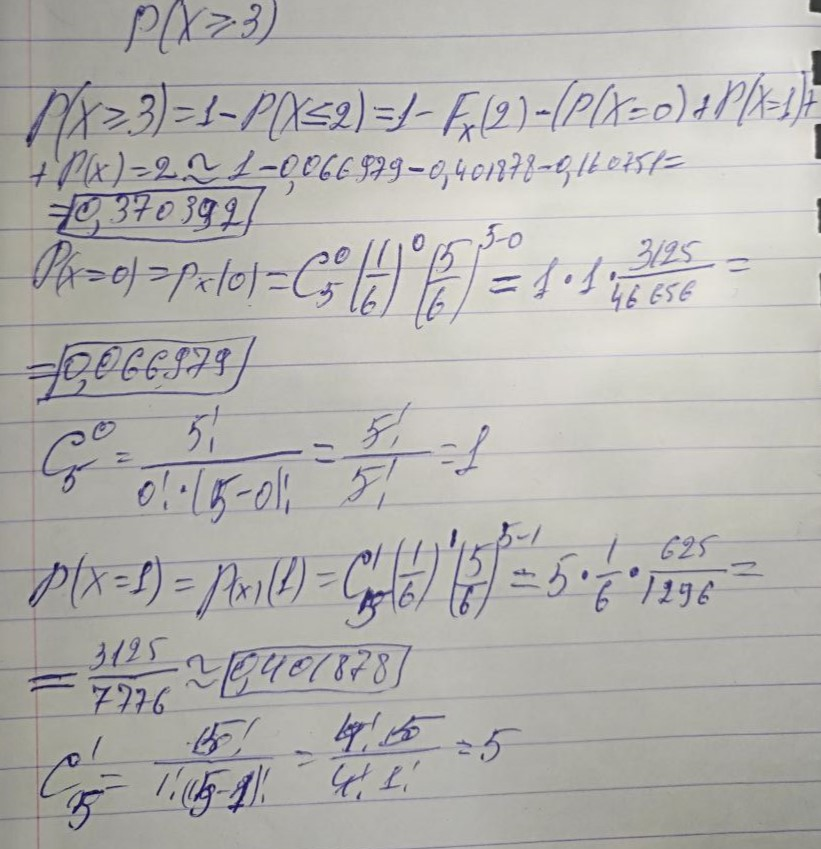 P(X≥3)
P(X≥3)=1-P(X≤2)=1-Fₓ(2)-(P(X=0)+P(X=1)+
+P(x)=2≈1-0,066979-0,401878-0,160751=
=0,370392
P(X=0)=pₓ(0)=C₅⁰(1/6)⁰(5/6)⁵⁻⁰=1·1·3125/46656=
=0,066979
C₅⁰=5!/0!·(5-0)!=5!/5!=1
P(X=1)=p(x)(1)=C₅¹(1/6)¹(5/6)⁵⁻¹=5·1/6·625/1296=
=3125/7776≈0,401878
C₅¹=5!/1!(5-1)!=4!·5/4!·1!=5